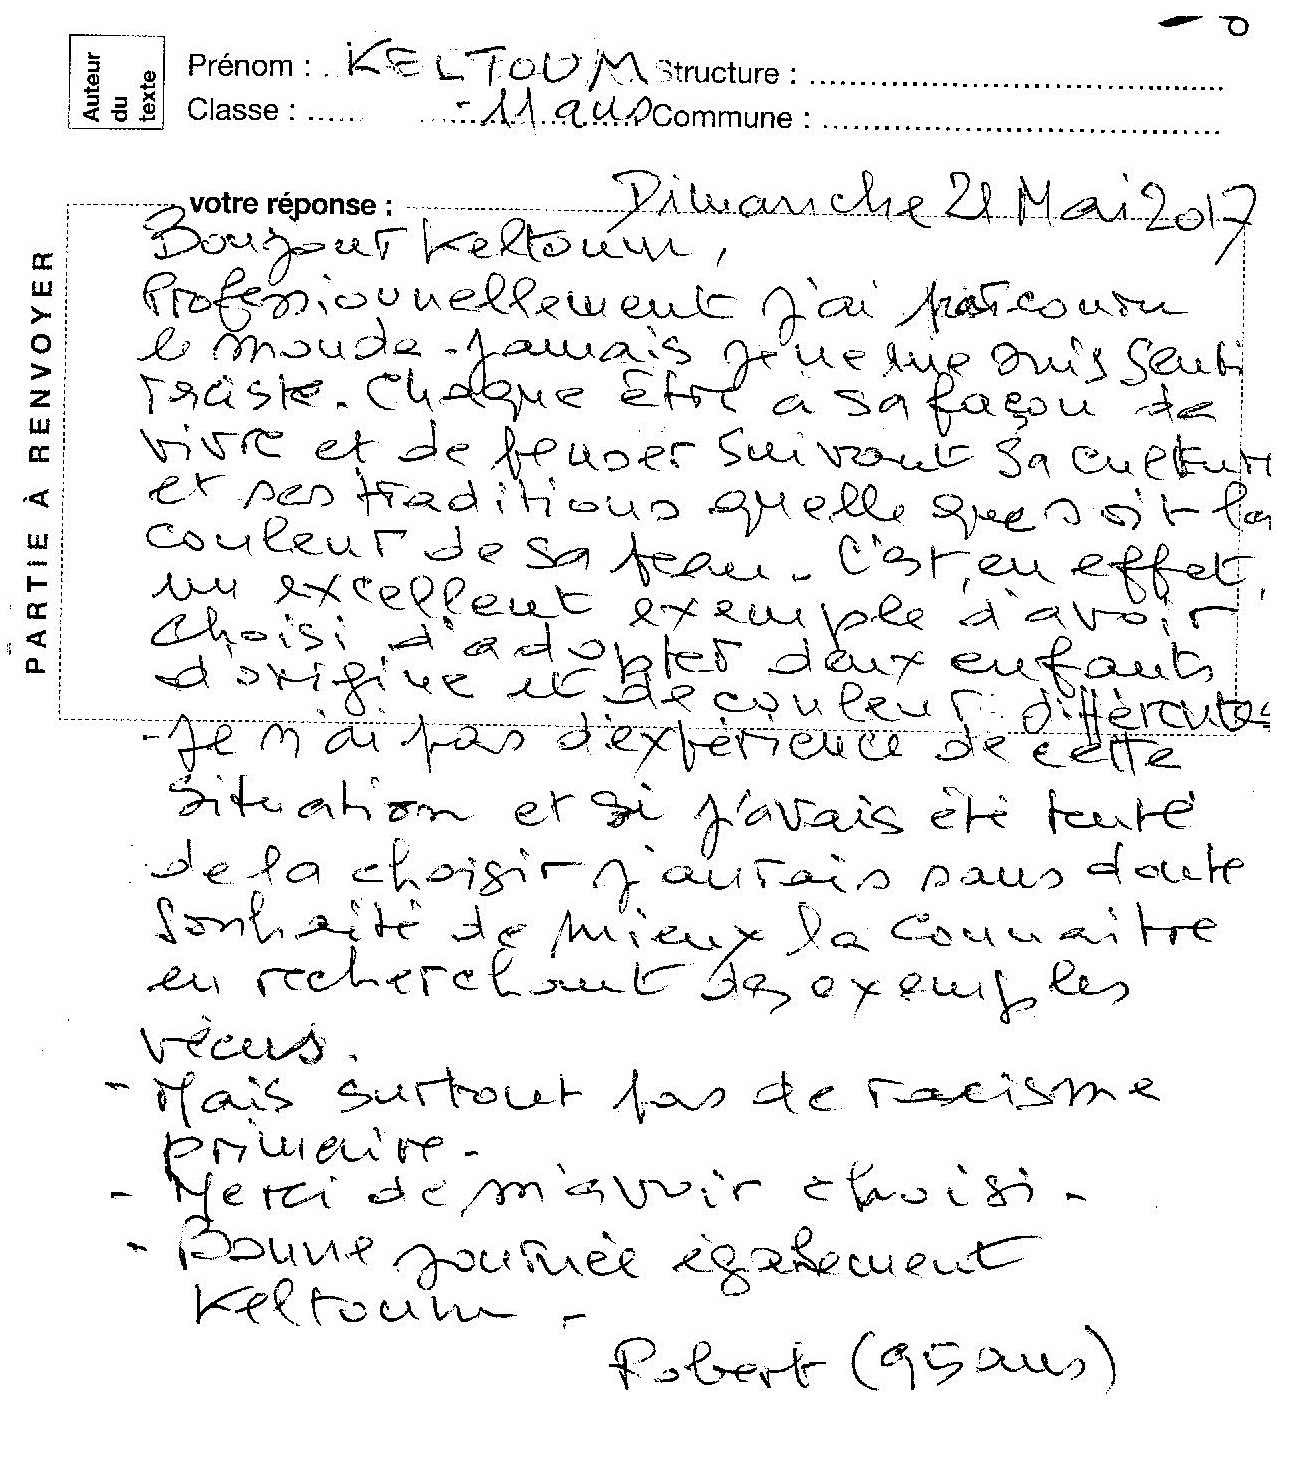 Auteur du texte
Prénom : KELTOUM Structure :
Classe : - 11 ans Commune :
PARTIE À RENVOYER
votre réponse : Dimanche 21 Mai 2017
Bonjour Keltoum,
Professionnellement j'ai parcouru
le monde. Jamais je ne me suis senti
raciste. Chaque être a sa façon de
vivre et de penser suivant sa culture
et ses traditions quelle que soit la
couleur de sa peau. C'est, en effet,
un excellent exemple d'avoir
choisi d'adopter deux enfants
d'origine et de couleur différentes
- Je n'ai pas d'expérience de cette
situation et si j'avais été tenté
de la choisir j'aurais sans doute
souhaité de mieux la connaitre
en recherchant des exemples
vécus.
- Mais surtout pas de racisme
primaire.
- Merci de m'avoir choisi -
- Bonne journée également
Keltoum -
Robert (95 ans)